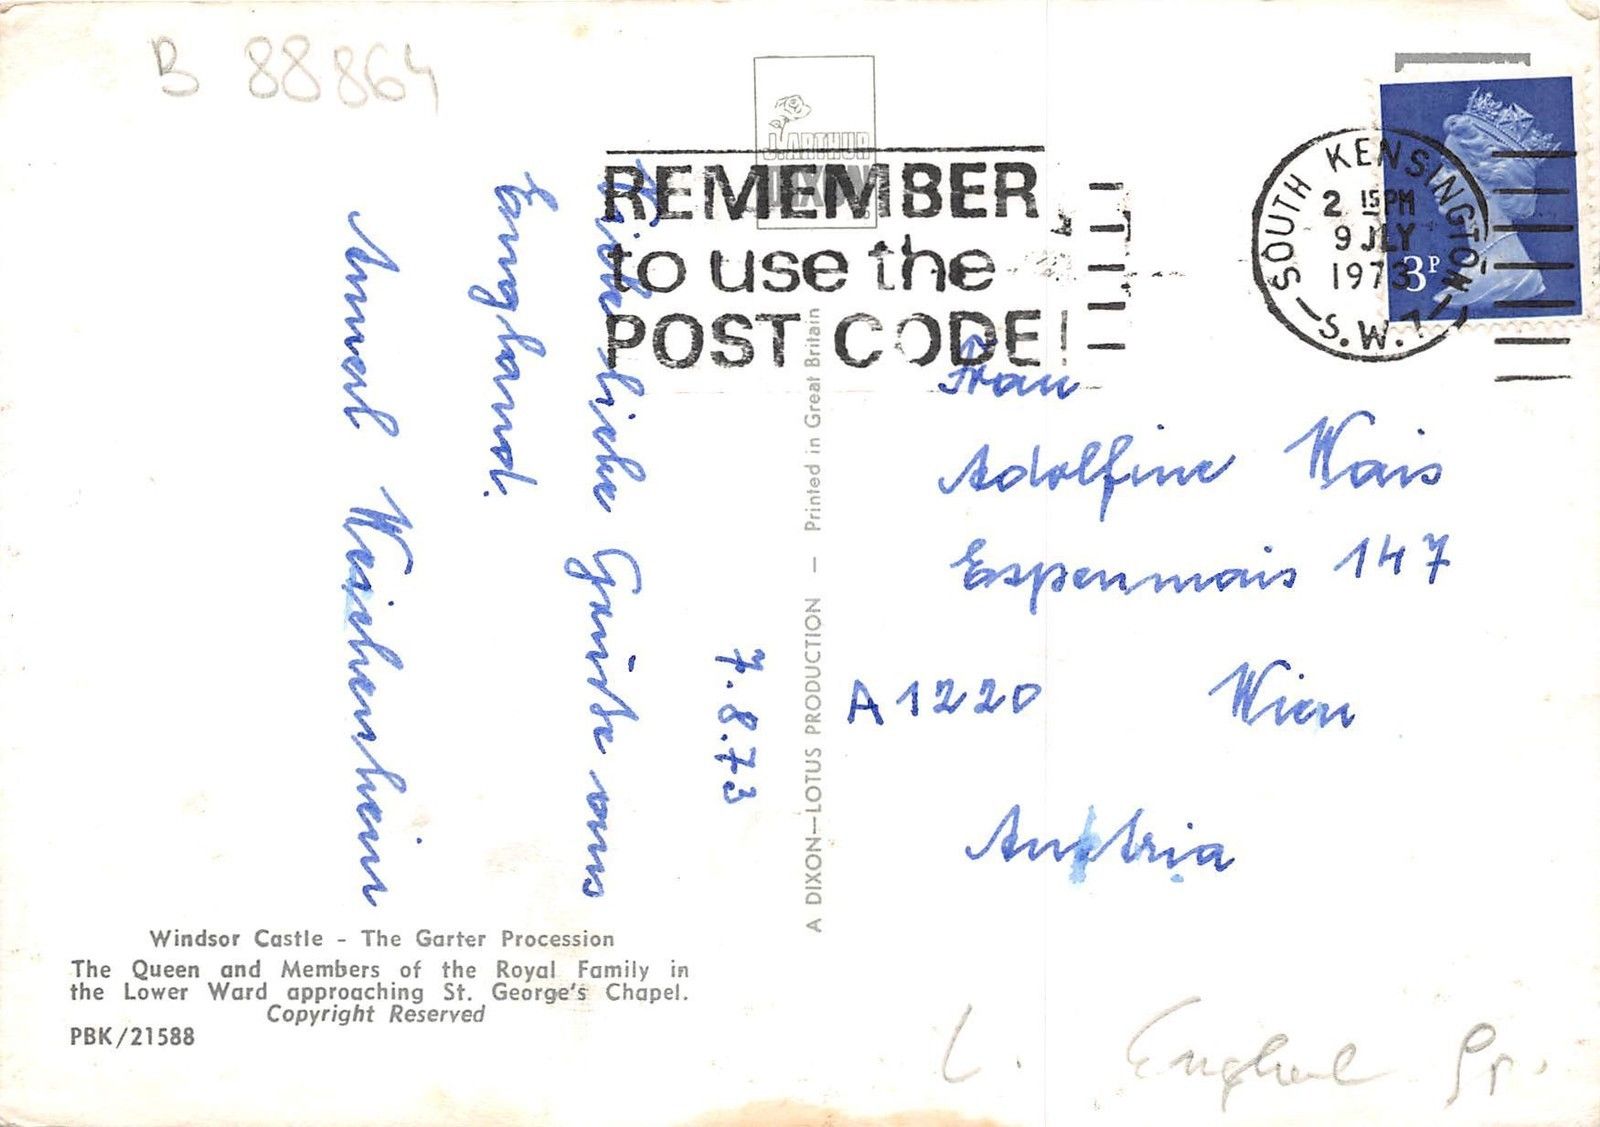 B 88864
J. ARTHUR
DIXON
REMEMBER
to use the
POST CODE!
SOUTH KENSINGTON
2 15 PM
9 JLY
1973
S.W.7
3P
7.8.73
Grüße aus
England.
Annerl Weichenheim
A DIXON—LOTUS PRODUCTION — Printed in Great Britain
Frau
Adolfine Wais
Espenmais 147
A 1220 Wien
Austria
Windsor Castle - The Garter Procession
The Queen and Members of the Royal Family in
the Lower Ward approaching St. George's Chapel.
Copyright Reserved
PBK/21588
L. England Gr.